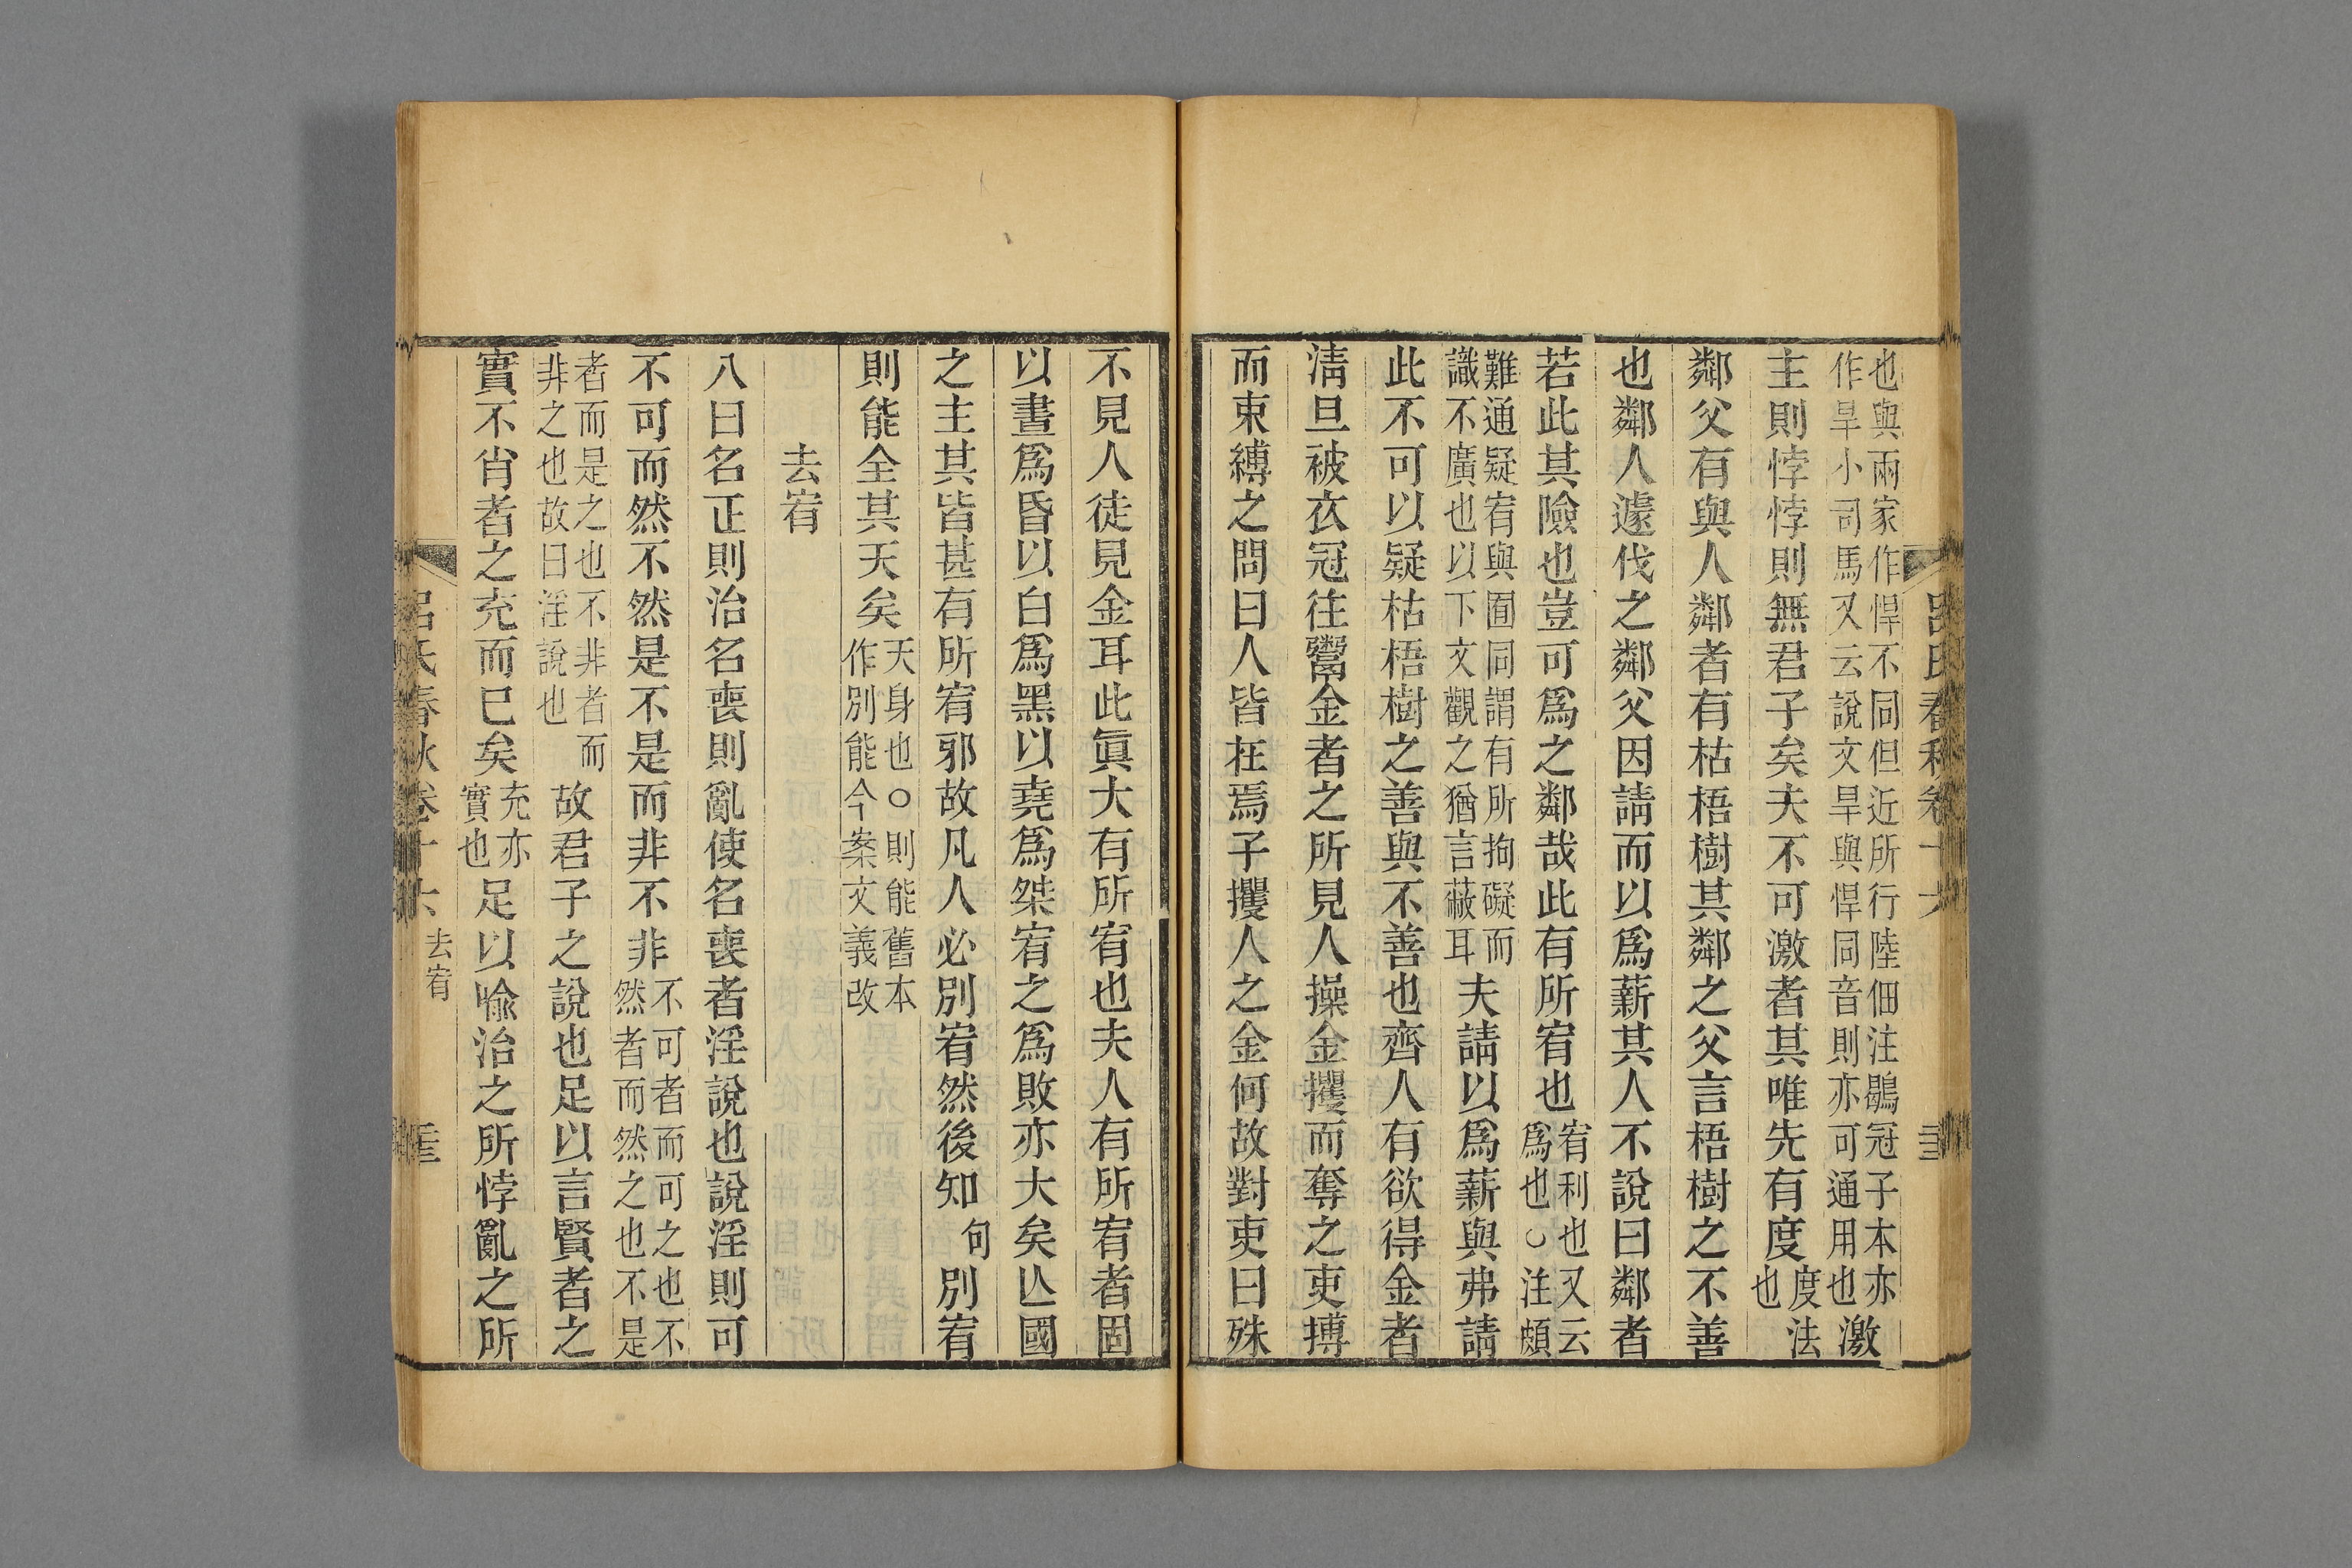 也與兩家作悍不同但近所行陸佃注鶡冠子本亦
作旱小司馬又云說文旱與悍同音則亦可通用也激
主則悖悖則無君子矣夫不可激者其唯先有度度法也
鄰父有與人鄰者有枯梧樹其鄰之父言梧樹之不善
也鄰人遽伐之鄰父因請而以爲薪其人不說曰鄰者
若此其險也豈可爲之鄰哉此有所宥也宥利也又云爲也○注頗
難通疑宥與囿同謂有所拘礙而識不廣也以下文觀之猶言蔽耳夫請以爲薪與弗請
此不可以疑枯梧樹之善與不善也齊人有欲得金者
淸旦被衣冠往鬻金者之所見人操金攫而奪之吏搏
而束縛之問曰人皆在焉子攫人之金何故對吏曰殊
不見人徒見金耳此眞大有所宥也夫人有所宥者固
以晝爲昏以白爲黑以堯爲桀宥之爲敗亦大矣亾國
之主其皆甚有所宥邪故凡人必別宥然後知句別宥
則能全其天矣天身也○則能舊本作別能今案文義改
去宥
八曰名正則治名喪則亂使名喪者淫說也說淫則可
不可而然不然是不是而非不非不可者而可之也不然者而然之也不是
者而是之也不非者而非之也故曰淫說也故君子之說也足以言賢者之
實不肖者之充而已矣充亦實也足以喻治之所悖亂之所
呂氏春秋卷十六 去宥